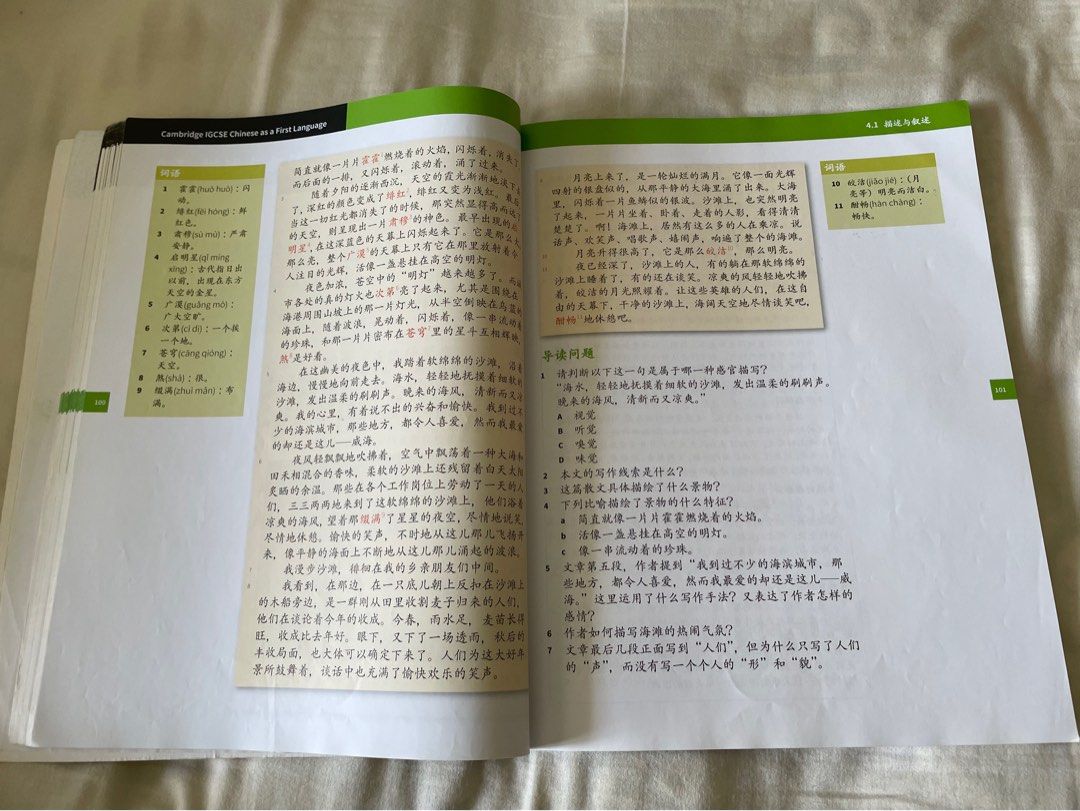 Cambridge IGCSE Chinese as a First Language
词语
1 霍霍(huò huò)：闪
动。
2 绯红(fēi hóng)：鲜
红色。
3 肃穆(sù mù)：严肃
安静。
4 启明星(qǐ míng
xīng)：古代指日出
以前，出现在东方
天空的金星。
5 广漠(guǎng mò)：
广大空旷。
6 次第(cì dì)：一个挨
一个地。
7 苍穹(cāng qióng)：
天空。
8 煞(shà)：很。
9 缀满(zhuì mǎn)：布
满。
100
简直就像一片片霍霍1燃烧着的火焰，闪烁着，消失了
而后面的一排，又闪烁着，滚动着，涌了过来。
随着夕阳的逐渐西沉，天空的霞光渐渐地淡下去
了，深红的颜色变成了绯红2，绯红又变为浅红。最后
当这一切红光都消失了的时候，那突然显得高而远了
的天空，则呈现出一片肃穆3的神色。最早出现的启
明星4，在这深蓝色的天幕上闪烁起来了。它是那么大
那么亮，整个广漠5的天幕上只有它在那里放射着令
人注目的光辉，活像一盏悬挂在高空的明灯。
4 夜色加浓，苍空中的“明灯”越来越多了。而城
市各处的真的灯火也次第6亮了起来，尤其是围绕在
海港周围山坡上的那一片灯光，从半空倒映在乌蓝的
海面上，随着波浪，晃动着，闪烁着，像一串流动着
的珍珠，和那一片片密布在苍穹7里的星斗互相辉映，
煞8是好看。
5 在这幽美的夜色中，我踏着软绵绵的沙滩，沿着
海边，慢慢地向前走去。海水，轻轻地抚摸着细软的
沙滩，发出温柔的刷刷声。晚来的海风，清新而又凉
爽。我的心里，有着说不出的兴奋和愉快。我到过不
少的海滨城市，那些地方，都令人喜爱，然而我最爱
的却还是这儿——威海。
6 夜风轻飘飘地吹拂着，空气中飘荡着一种大海和
田禾相混合的香味，柔软的沙滩上还残留着白天太阳
炙晒的余温。那些在各个工作岗位上劳动了一天的人
们，三三两两地来到了这软绵绵的沙滩上，他们浴着
凉爽的海风，望着那缀满9了星星的夜空，尽情地说笑，
尽情地休憩。愉快的笑声，不时地从这儿那儿飞扬开
来，像平静的海面上不断地从这儿那儿涌起的波浪。
7 我漫步沙滩，徘徊在我的乡亲朋友们中间。
8 我看到，在那边，在一只底儿朝上反扣在沙滩上
的木船旁边，是一群刚从田里收割麦子归来的人们，
他们在谈论着今年的收成。今春，雨水足，麦苗长得
旺，收成比去年好。眼下，又下了一场透雨，秋后的
丰收局面，也大体可以确定下来了。人们为这大好年
景所鼓舞着，谈话中也充满了愉快欢乐的笑声。
4.1 描述与叙述
9 月亮上来了，是一轮灿烂的满月。它像一面光辉
四射的银盘似的，从那平静的大海里涌了出来。大海
里，闪烁着一片鱼鳞似的银波。沙滩上，也突然明亮
了起来，一片片坐着、卧着、走着的人影，看得清清
楚楚了。啊！海滩上，居然有这么多的人在乘凉。说
话声、欢笑声、唱歌声、嬉闹声，响遍了整个的海滩。
10 月亮升得很高了，它是那么皎洁10，那么明亮。
11 夜已经深了，沙滩上的人，有的躺在那软绵绵的
沙滩上睡着了，有的还在谈笑。凉爽的风轻轻地吹拂
着，皎洁的月光照耀着。让这些英雄的人们，在这自
由的天幕下，干净的沙滩上，海阔天空地尽情谈笑吧，
酣畅11地休憩吧。
词语
10 皎洁(jiǎo jié)：(月
亮等) 明亮而洁白。
11 酣畅(hān chàng)：
畅快。
导读问题
1 请判断以下这一句是属于哪一种感官描写？
“海水，轻轻地抚摸着细软的沙滩，发出温柔的刷刷声。
晚来的海风，清新而又凉爽。”
A 视觉
B 听觉
C 嗅觉
D 味觉
2 本文的写作线索是什么？
3 这篇散文具体描绘了什么景物？
4 下列比喻描绘了景物的什么特征？
a 简直就像一片片霍霍燃烧着的火焰。
b 活像一盏悬挂在高空的明灯。
c 像一串流动着的珍珠。
5 文章第五段，作者提到“我到过不少的海滨城市，那
些地方，都令人喜爱，然而我最爱的却还是这儿——威
海。”这里运用了什么写作手法？又表达了作者怎样的
感情？
6 作者如何描写海滩的热闹气氛？
7 文章最后几段正面写到“人们”，但为什么只写了人们
的“声”，而没有写一个个人的“形”和“貌”。
101